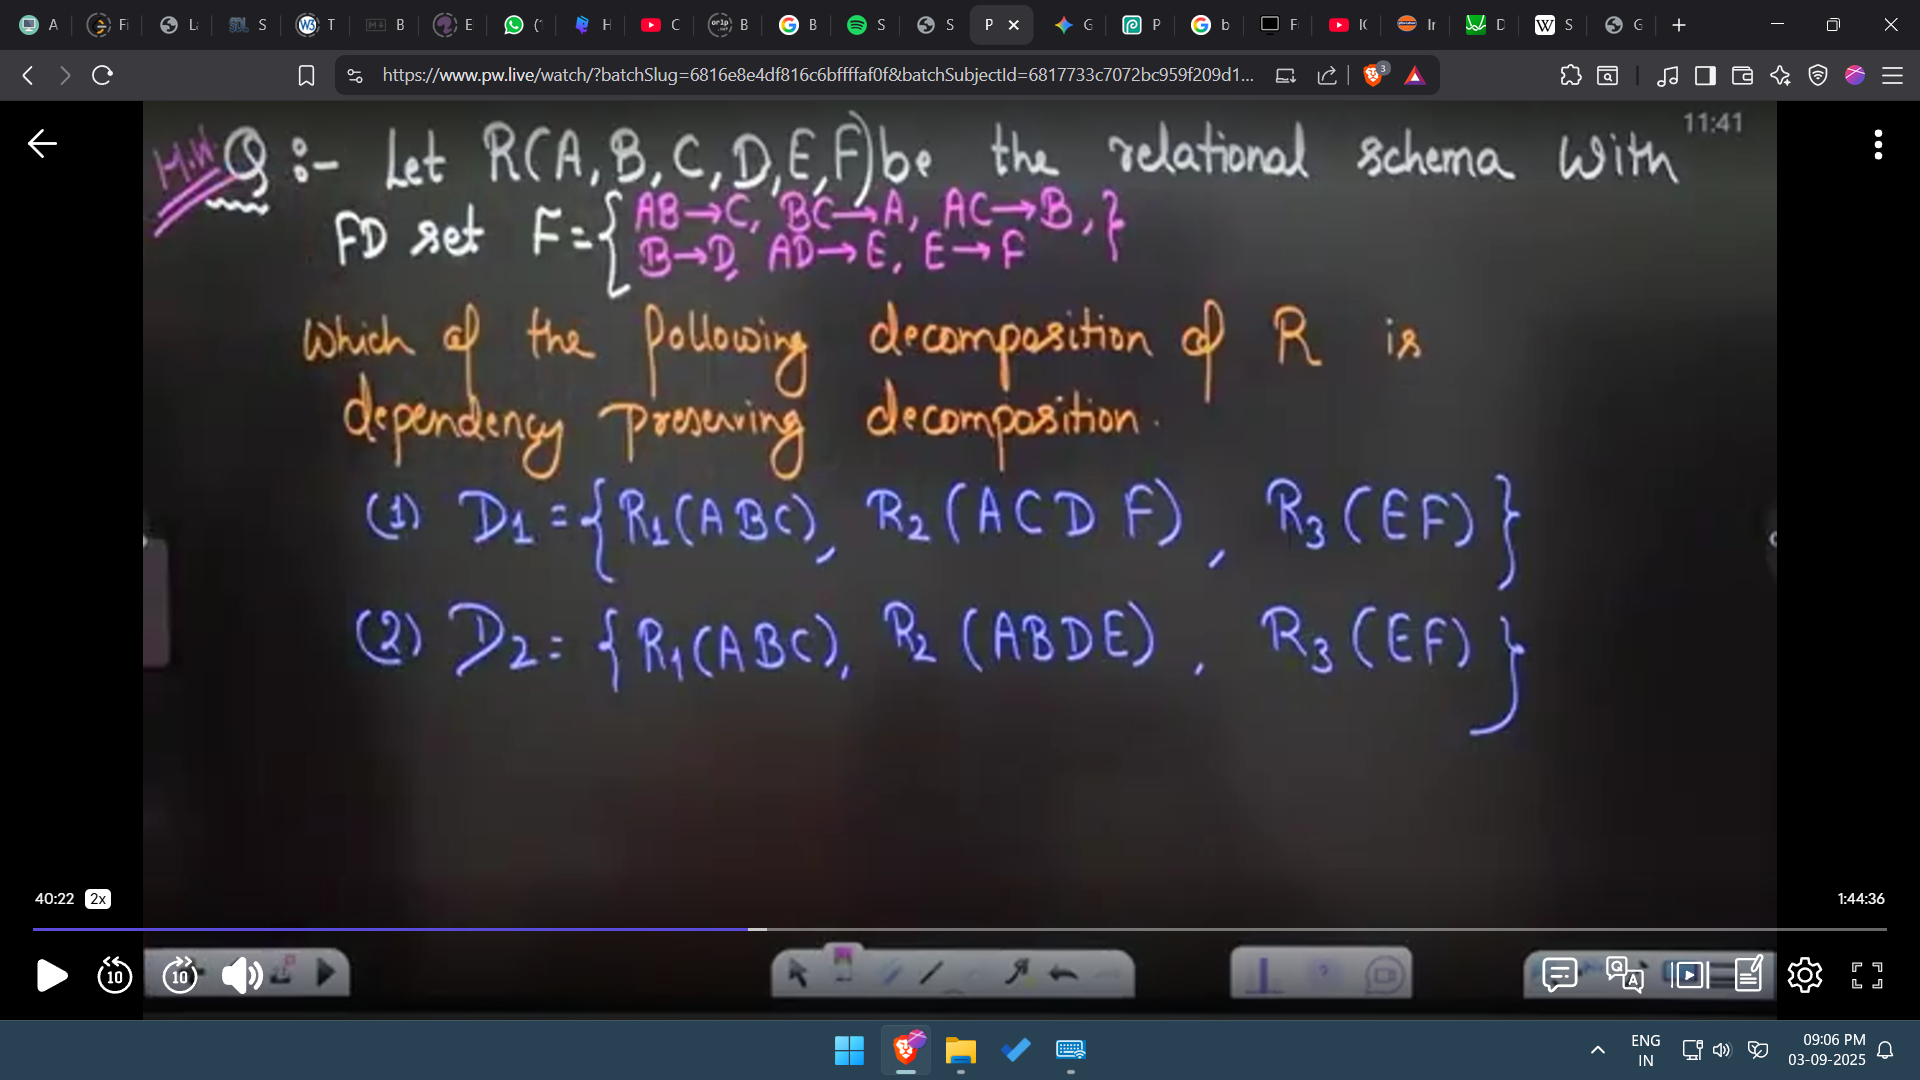 A Fi L S T B E (1 H C B B S S P G P b F IC Ir D S G
https://www.pw.live/watch/?batchSlug=6816e8e4df816c6bffffaf0f&batchSubjectId=6817733c7072bc959f209d1...
3
11:41
H.W. Q :- Let R(A, B, C, D, E, F) be the relational schema With
FD set F = { AB → C, BC → A, AC → B, }
B → D, AD → E, E → F
Which of the following decomposition of R is
dependency preserving decomposition.
(1) D1 = { R1(ABC), R2 (ACDF), R3 (EF) }
(2) D2 = { R1(ABC), R2 (ABDE), R3 (EF) }
40:22 2x 1:44:36
10 10
ENG 09:06 PM
IN 03-09-2025